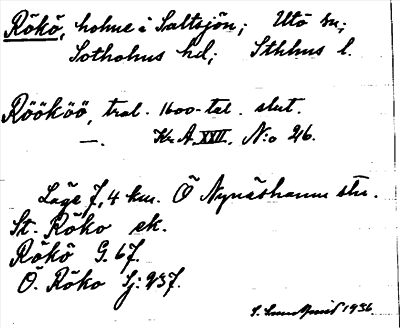 Rökö, holme i Saltsjön; Utö sn;
Sotholms hd; Sthlms l.
Röököö, trol. 1600-tal. slut.
—. Kr. A. XXII. N:o 26.
Läge 7,4 km. Ö Nynäshamns stn.
St. Röko ek.
Rökö G. 67.
Ö. Röko Sj: 237.
1936